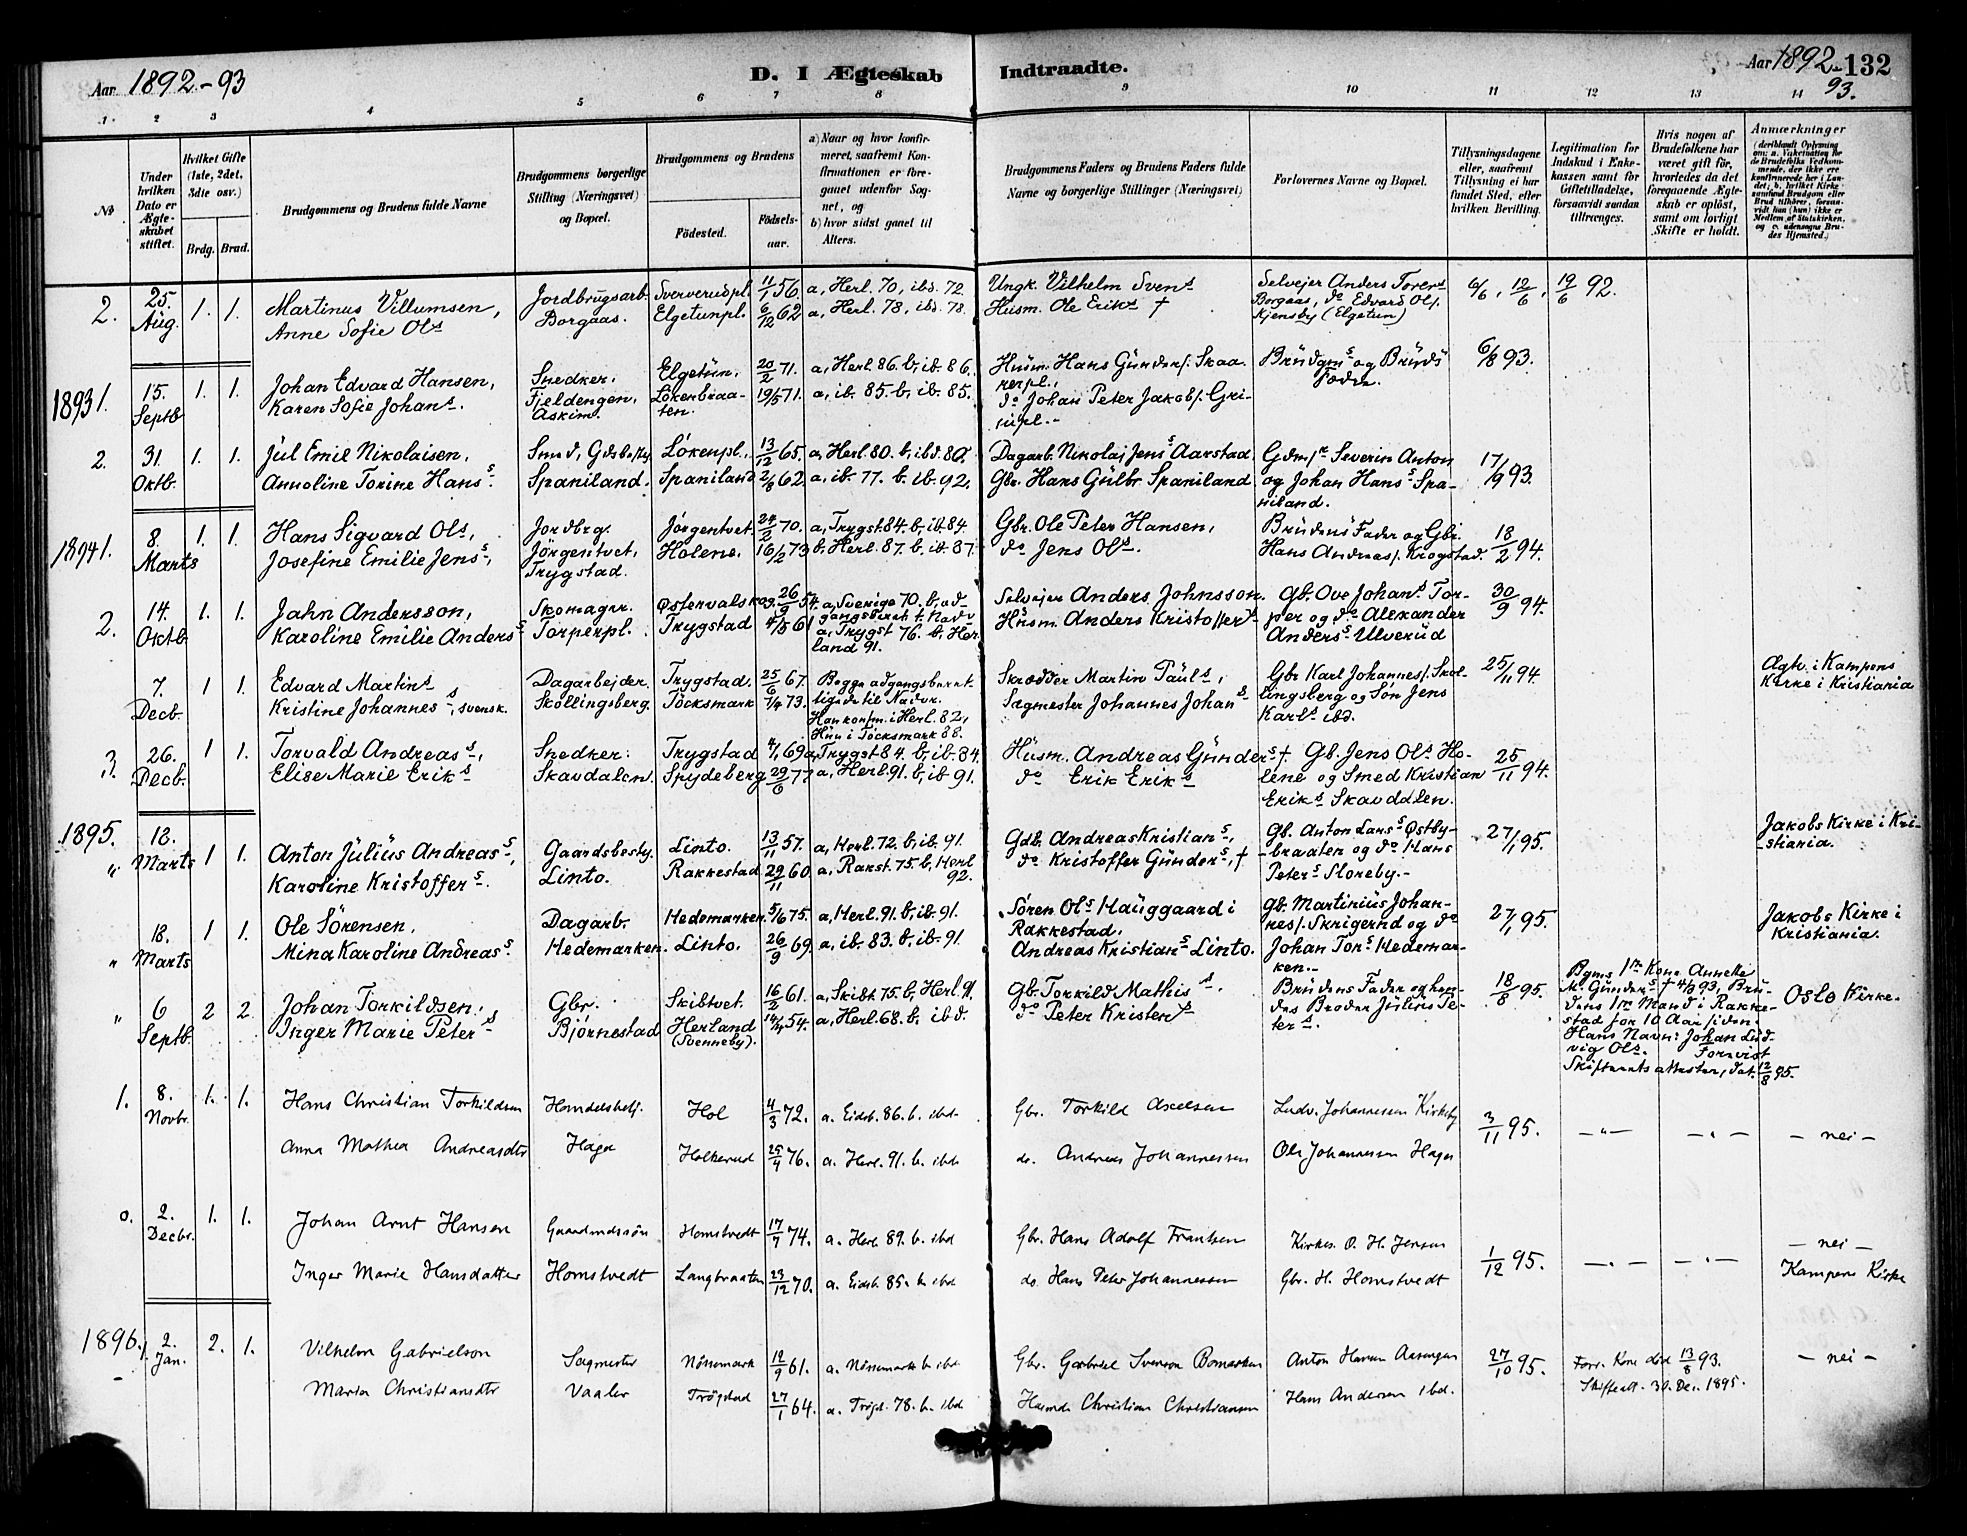 Aar 1892-93
D. I Ægteskab
Indtraadte.
Aar 1892-93.
132
1 2 3 4 5 6 7 8 9 10 11 12 13 14
No
Under hvilken Dato er Ægteskabet stiftet.
Hvilket Gifte (1ste, 2det, 3die osv.)
Brdg. Brud.
Brudgommens og Brudens fulde Navne
Brudgommens borgerlige Stilling (Næringsvei) og Bopæl.
Brudgommens og Brudens
Fødested.
Fødselsaar.
a) Naar og hvor konfirmeret, saafremt Konfirmationen er foregaaet udenfor Sognet, og
b) hvor sidst gaaet til Alters.
Brudgommens Faders og Brudens Faders fulde Navne og borgerlige Stillinger (Næringsvei)
Forlovernes Navne og Bopæl.
Tillysningsdagene eller, saafremt Tillysning ei har fundet Sted, efter hvilken Bevilling.
Legitimation for Indskud i Enkekassen samt for Giftetilladelse, forsaavidt saadan tiltrænges.
Hvis nogen af Brudefolkene har været gift før, hvorledes da det foregaaende Ægteskab er opløst, samt om lovligt Skifte er holdt.
Anmærkninger
2. 25. Aug. 1. 1. Martinus Villumsen, Jordbrugsarb. Sververudpl. 11/1 56. a, Herl. 70, ibd. 72. Ungk. Vilhelm Svens Selvejer Anders Torens Borgaas, do Edvard Ols. Kjensby (Elgetun) 6/6, 12/6, 19/6 92.
Anne Sofie Ols Borgaas. Elgetunpl. 6/12 62 a, Herl. 78, ibd. 78. Husm. Ole Eriks †
1893 1. 15. Septb 1. 1. Johan Edvard Hansen, Snedker. Elgetun. 20/2 71. a, Herl. 86. b, ib. 86. Husm. Hans Gunders. Skaarerpl., Brudgms og Bruds Fædre. 6/8 93.
Karen Sofie Johans. Fjeldengen, Askim. Lökenbraaten. 19/5 71. a, ib. 85. b, ib. 85. do Johan Peter Jakobs. Grinipl.-
2. 31. Oktb. 1. 1. Jul Emil Nikolaisen, Smed, Gdsbesty. Lökenpl., 13/12 65. a, Herl. 80. b, ibd. 80. Dagarb. Nikolaj Jens Aarstad. Gdm. Severin Anton og Johan Hans Spaniland. 17/9 93.
Annoline Torine Hans. Spaniland. Spaniland 2/8 62. a, ib. 77. b. ib. 92. Gbr. Hans Gulbr. Spaniland
1894 1. 8. Marts 1. 1. Hans Sigvard Ols, Jordbrg. Jörgentvet. 24/2 70. a, Trygst. 84. b, ib. 84. Gbr. Ole Peter Hansen, Brudens Fader og Gbr. Hans Andreas. Krogstad. 18/2 94.
Josefine Emilie Jens, Jörgentvet, Trygstad. Holene. 16/2 73 b. Herl. 87. b, ib. 87. do Jens Ols.
2. 14. Oktb. 1. 1. Jahn Andersson, Skomager. Østervalskog. 26/9 54. a, Sverige 70. b, adgangsberet. t. Nadv. Selvejer Anders Johnsson. Gb. Ove Johans Torper og do Alexander Anders Ulverud 30/9 94.
Karoline Emilie Anders Torperpl. Trygstad 4/5 61 a, Trygst 76. b, Herland 91. Husm. Anders Kristoffers
7. Decb. 1 1. Edvard Martins Dagarbejder. Trygstad. 25/6 67. Begge adgangsberettigede til Nadvr. Skrædder Martin Pauls, Gbr Karl Johannes. Skollingsberg og Søn Jens Karls ibd. 25/11 94. Ægtv. i Kampens Kirke i Kristiania
Kristine Johannes, svensk. Skollingsberg. Töcksmark 7/4 73. Han konfm. i Herl. 82, Hun i Töcksmark 88. Sagmester Johannes Johans
3. 26. Decb. 1 1. Torvald Andreas, Snedker. Trygstad 4/1 69 a, Trygst 84. b, ib. 84. Husm. Andreas Gunders † Gb. Jens Ols Holene og Smed Kristian Eriks Skavdalen. 25/11 94.
Elise Marie Eriks Skavdalen. Spydeberg 29/6 77 a, Herl. 91. b, ib 91. do Erik Eriks
1895. " 18. Marts 1 1. Anton Julius Andreas, Gaardsbesty. Linto. 13/11 57. a, Herl. 72. b, ib. 91. Gdb. Andreas Kristians, Gb. Anton Lars Østbybraaten og do Hans Peters Sloreby.- 27/1 95. Jakobs Kirke i Kristiania.
Karoline Kristoffers. Linto. Rakkestad 29/11 60. a, Rakst. 75. b, Herl 92. do Kristoffer Gunders, †
" 18. Marts 1 1. Ole Sörensen. Dagarb. Hedemarken. 5/6 75. a, Herl. 91. b, ib. 91. Søren Ols Hauggaard i Rakkestad. Gb. Martinius Johannes. Skrigerud og do Johan Tors Hedemarken.- 27/1 95. Jakobs Kirke i Kristiania.
Mina Karoline Andreas. Hedemarken. Linto. 26/9 69. a, ib. 83. b, ib. 91. Andreas Kristians Linto.
" 6 Septb. 2 2. Johan Torkildsen, Gbr. Skibtvet. 16/2 61. a, Skibt. 75. b, Herl. 91. Gb. Torkild Mathis. Brudens Fader og hendes Broder Julius Peters. 18/8 95. Bgms 1ste Kone Annette M. Gunders † 4/3 93, Brudens 1ste Mand i Rakkestad for 10 Aar siden. Hans Navn: Johan Ludvig Ols. Fornvist Skifteretsattester, dat. 12/8 95. Oslo Kirke.
Inger Marie Peters Bjørnestad Herland (Svenneby). 14/4 54. a, Herl. 68. b, ibd. do Peter Kristens
1. 8. Novbr. 1. 1. Hans Christian Torkildsen Handelsbetj. Hol 4/3 72. a. Eidsb. 86. b. ibd. Gbr. Torkild Axelsen Ludv. Johannesen Kirkeby 3/11 95. -"- -"- - nei -
Anna Mathea Andreasdtr Haga Holkerud 25/4 76. a. Herl. 91. b. ibd. do. Andreas Johannessen Ole Johannesen Haga
0. 2. Decbr. 1. 1. Johan Arnt Hansen Gaardmdssön Homstvedt 17/7 74. a. Herl. 89. b. ibd Gbr. Hans Adolf Frantzen Kirkes. O. H. Jensen 1/12 95. -"- -"- - nei -
Inger Marie Hansdatter Homstvedt Langbraaten 23/12 70. a. Eidsb. 85. b. ibd do. Hans Peter Johannessen Gbr. H. Homstvedt Kampens Kirke
1896. 1. 2. Jan. 2. 1. Vilhelm Gabrielson Sagmester Nössemark 12/9 61. a. Nössemark b. ibd Gbr. Gabriel Svenson Bomarken Anton Hansen Aasengen 27/10 95. Forr. Kone död 13/8 93. Skifteatt. 30. Dec. 1895. - nei -
Maria Christiansdtr Vaaler Trögstad 27/1 64. a. Trögst. 78. b. ibd Husmd. Christian Christiansen Hans Andersen ibd.